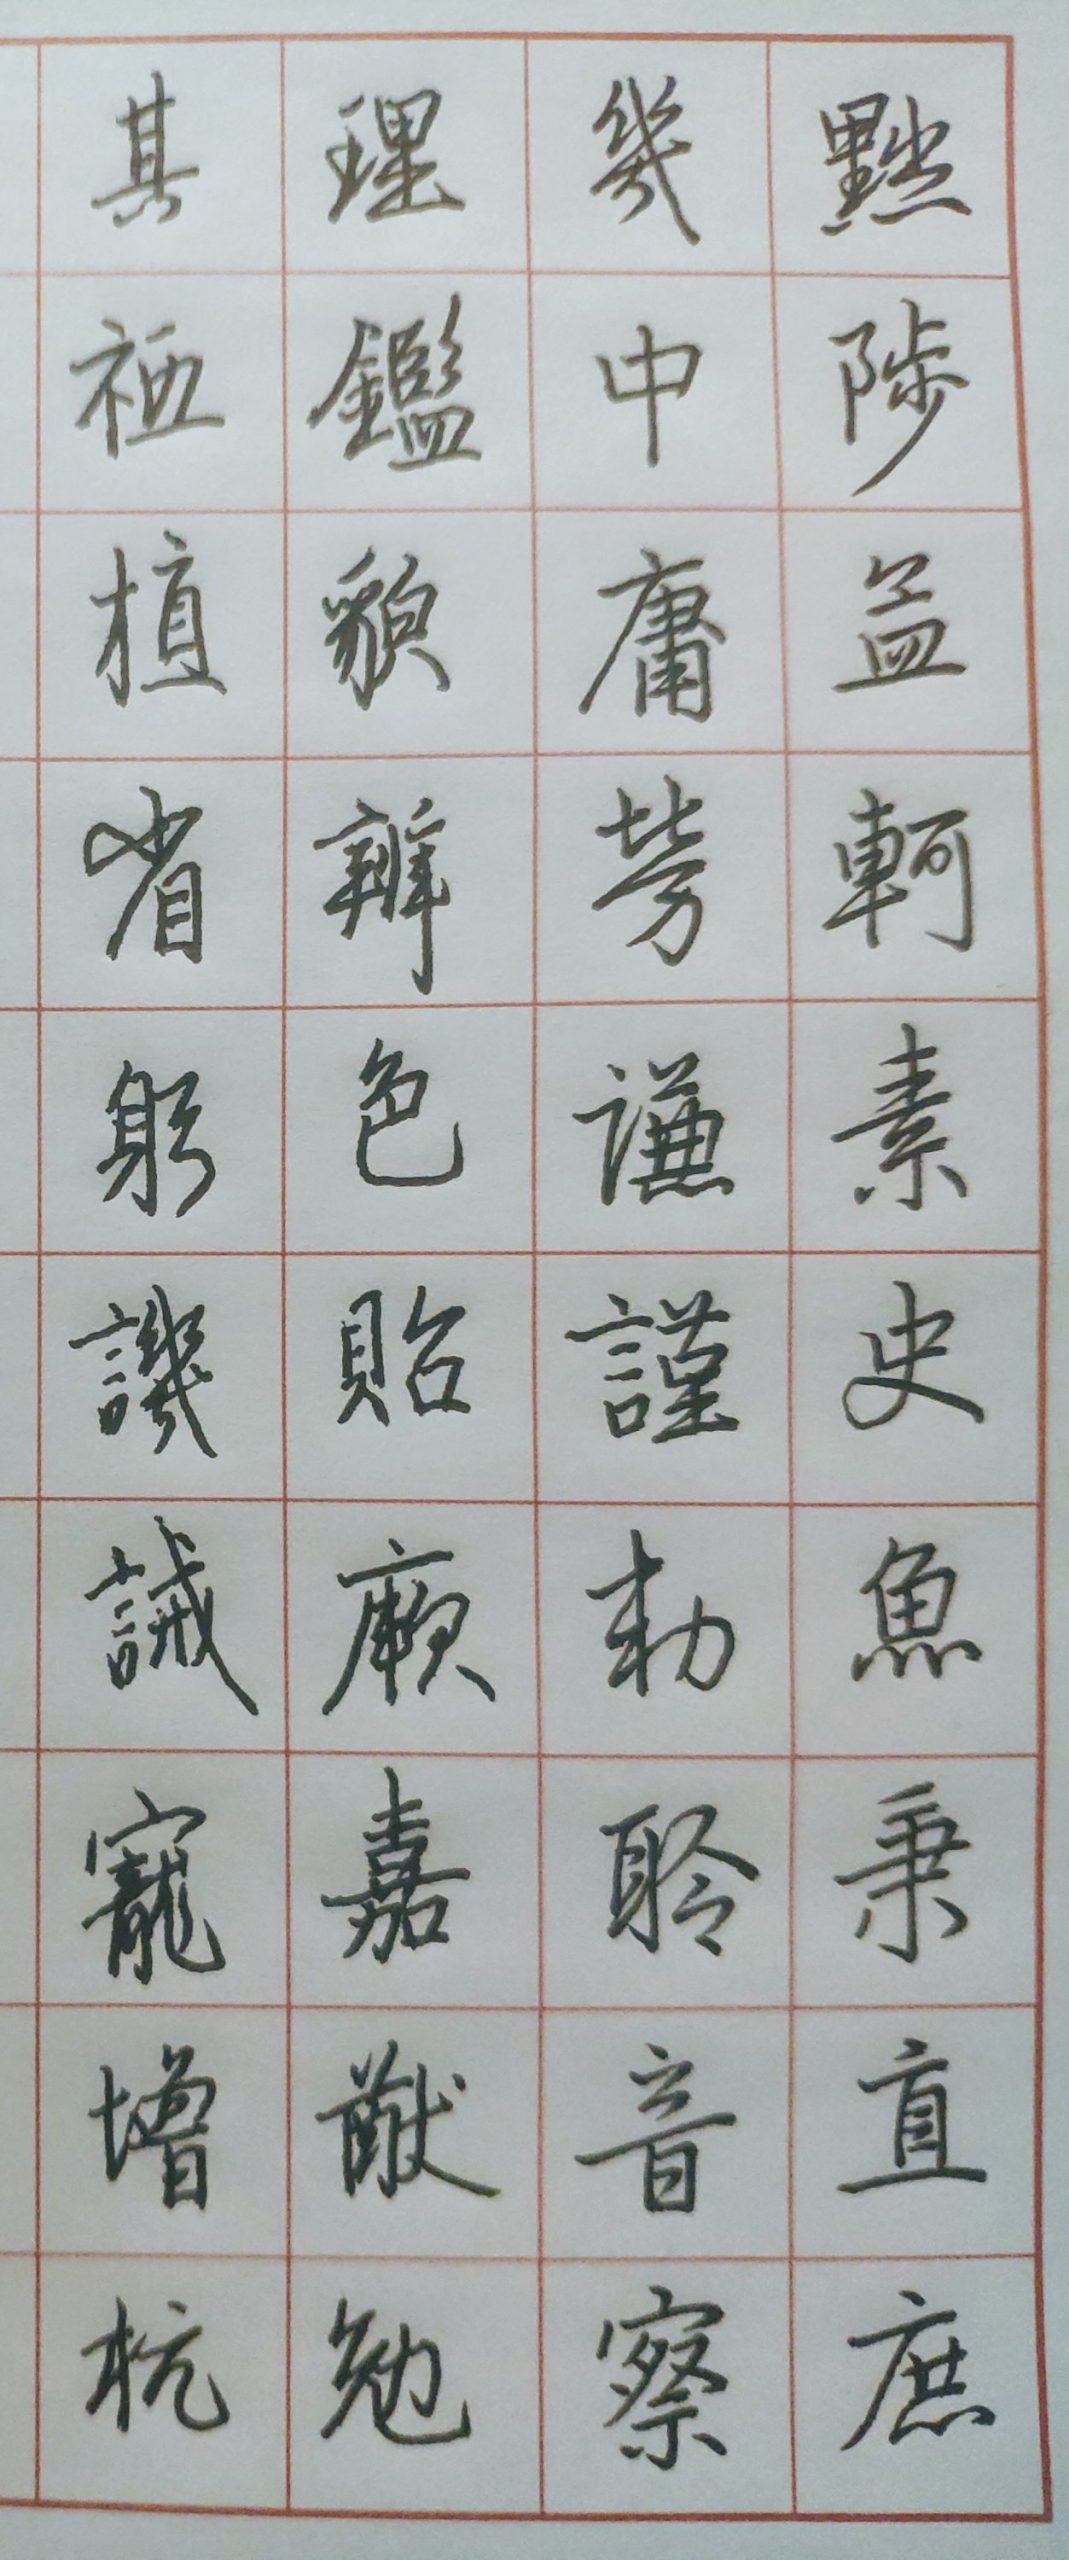 黜陟孟軻素史魚秉直庶
幾中庸勞謙謹勅聆音察
理鑑貌辨色貽厥嘉猷勉
其祗植省躬譏誡寵增抗